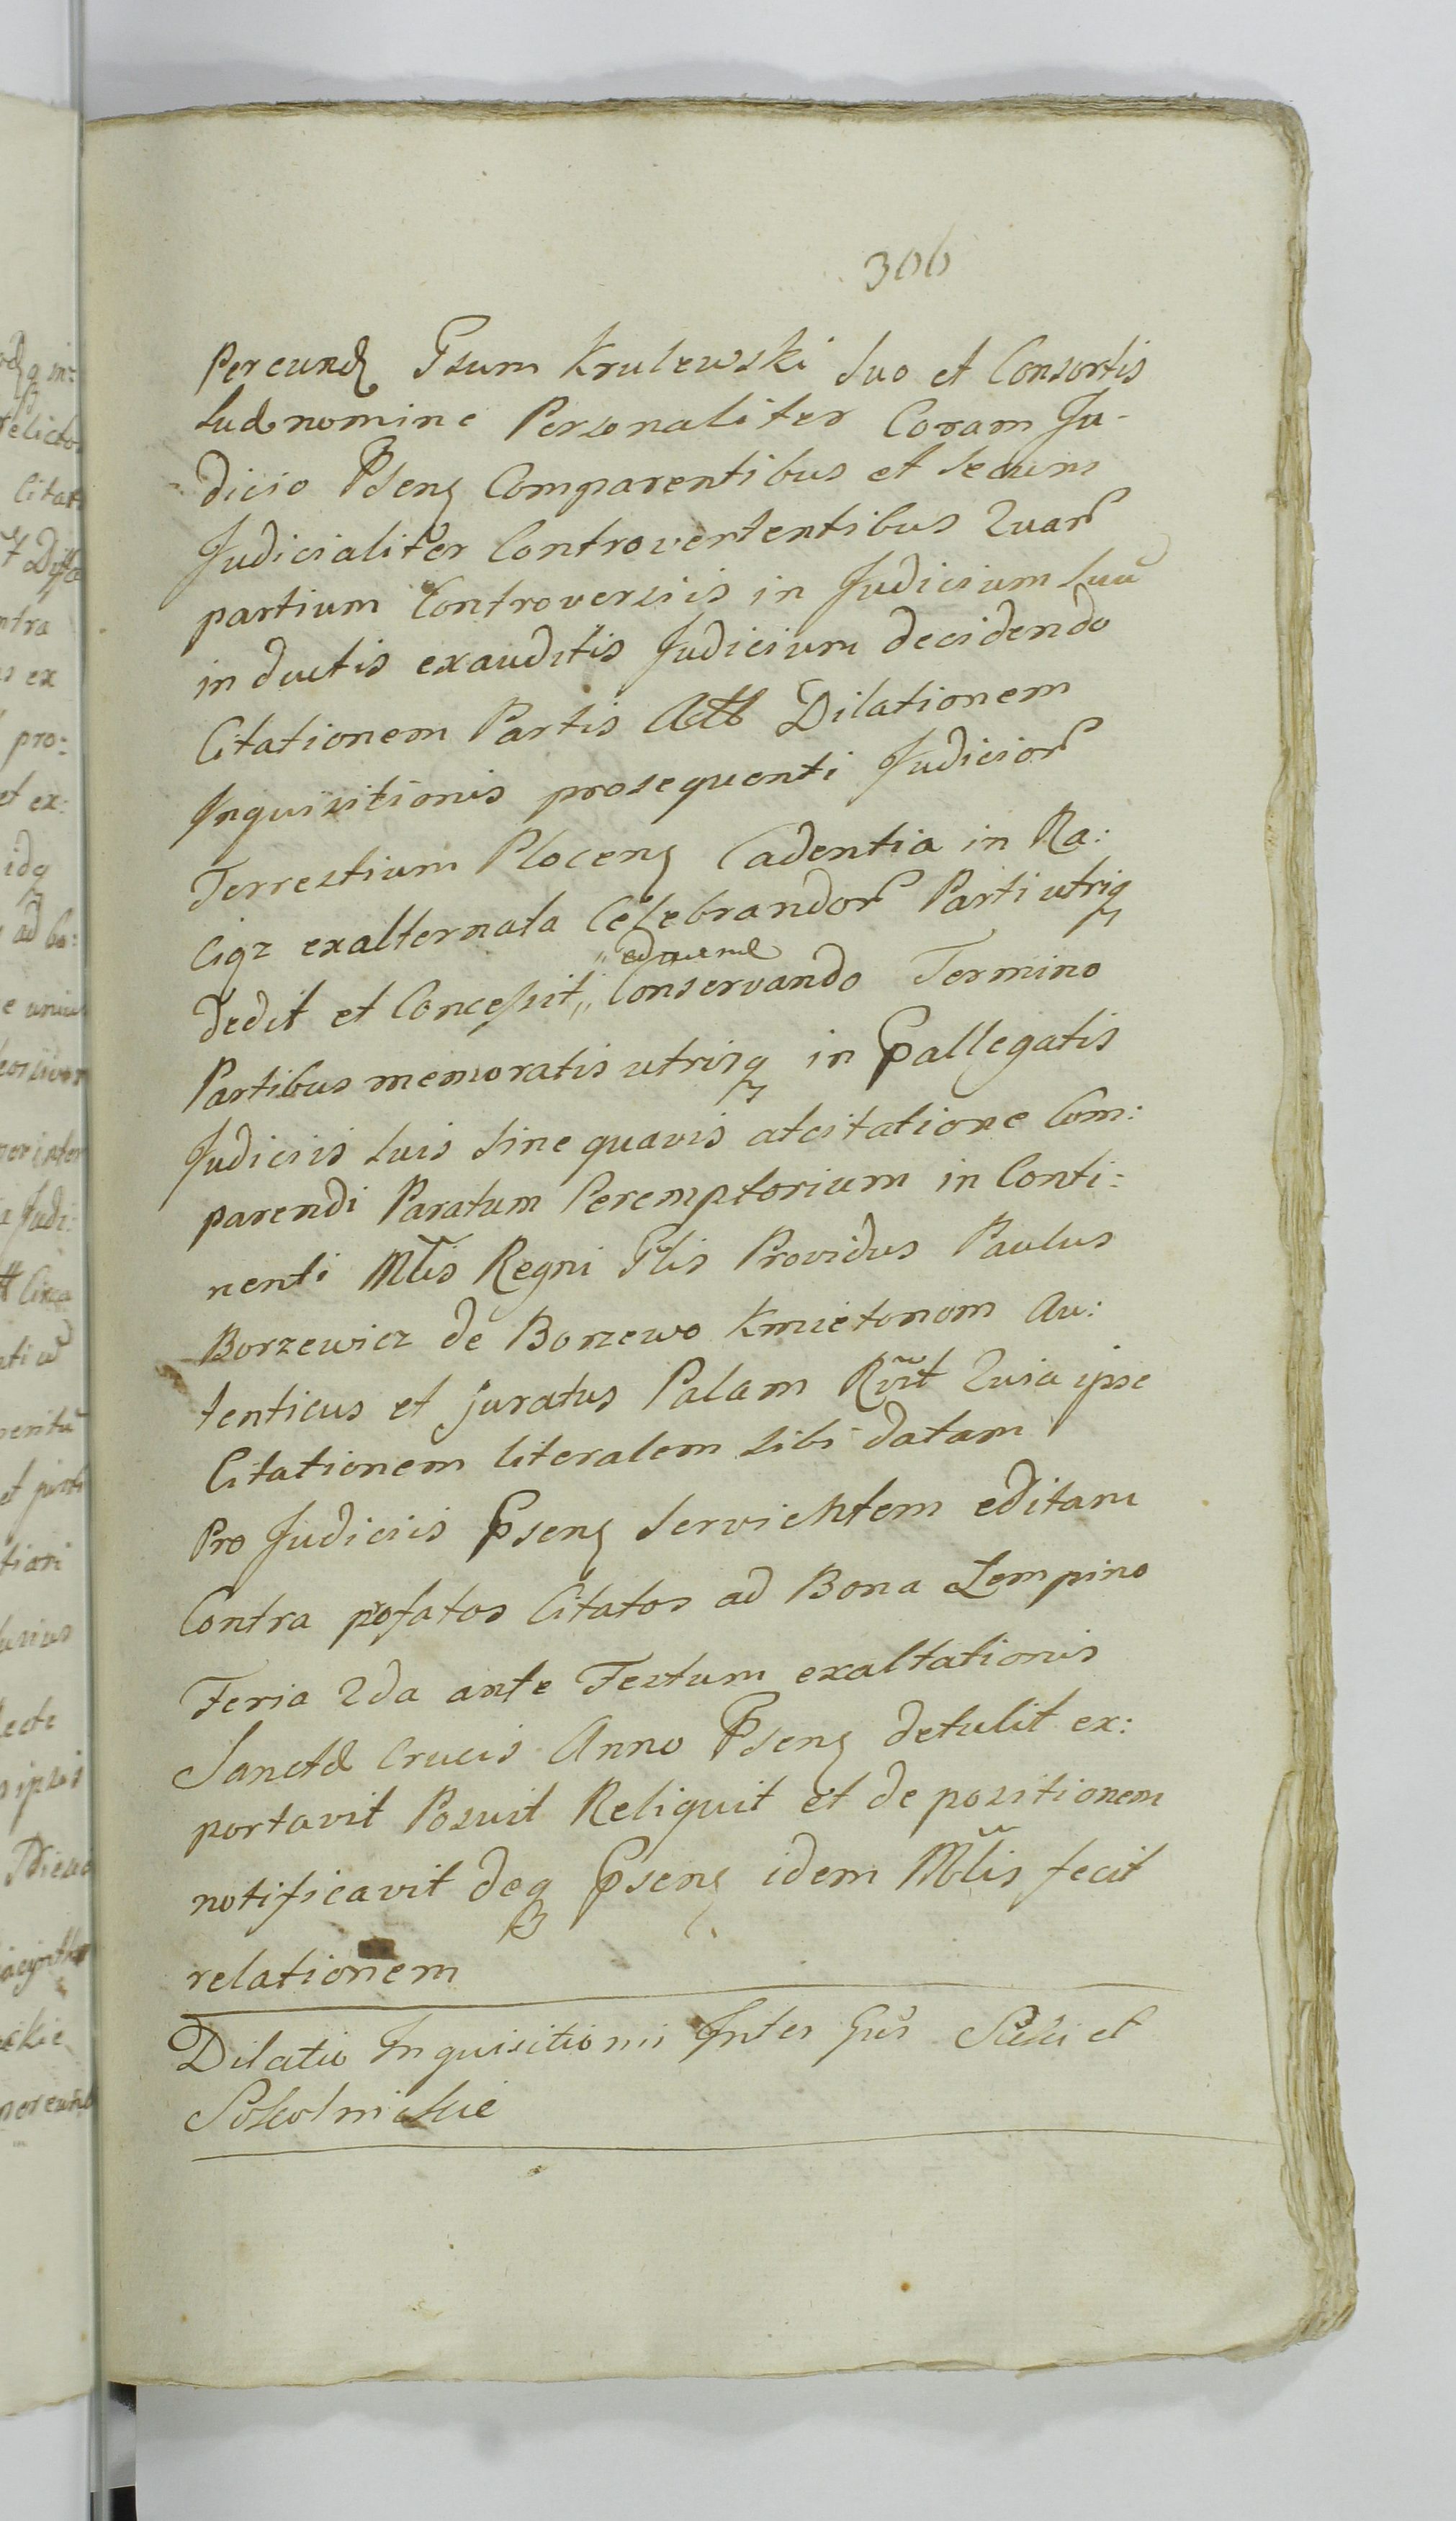 306
Pereund Gsum Krulewski Suo et Consortis
Suæ nomine Personaliter Coram Ju-
dicio Pseng Comparentibus et Secum
Judicialiter Controvertentibus Quar
partium Controversiis in Judicium Suũ
in ductis exauditis Judicium decidendo
Citationem Partis Dilationem
Inquisitionis prosequenti Judicior
Terrestium Ploceng Cadentia in Ra:
ciąz exalternata Celebrandor Parti utriq
dedit et Concessit,, Conservando Termino
Partibus memoratis utrisq in Pallegatis
Judiciis Suis Sine quavis atcitatione Com:
parendi Paratum Peremptorium in Conti:
nenti Mtis Regni Glis Providus Paulus
Borzewicz de Borzewo Kmietonom Au:
tenticus et Juratus Palam Rvit Quia ipse
Citationem literalem sibi datam
Pro Judiciis Pseng Servientem editam
Contra pfatos Citatos ad Bona Lempino
Feria 2da ante Festum exaltationis
Sanctæ Crucis Anno Pseng detulit ex:
portavit Posuit Reliquit et de positionem
notificavit deq Pseng idem Mtlis fecit
relationem
Dilatio Inquisitionis Inter et